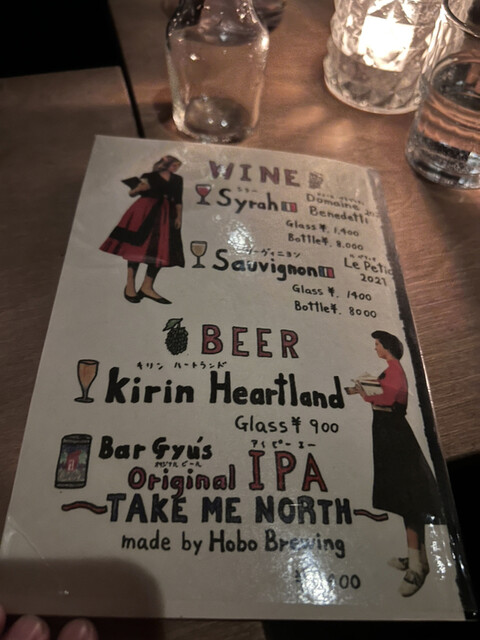 WINE
シラー
Syrah Domaine
Benedetti
Glass ¥. 1,400
Bottle ¥. 8,000
Sauvignon Le Petit
2021
Glass ¥. 1400
Bottle ¥. 8000
BEER
キリン ハートランド
Kirin Heartland
Glass ¥ 900
Bar Gyu's
オリジナルビール アイピーエー
Original IPA
~TAKE ME NORTH~
made by Hobo Brewing